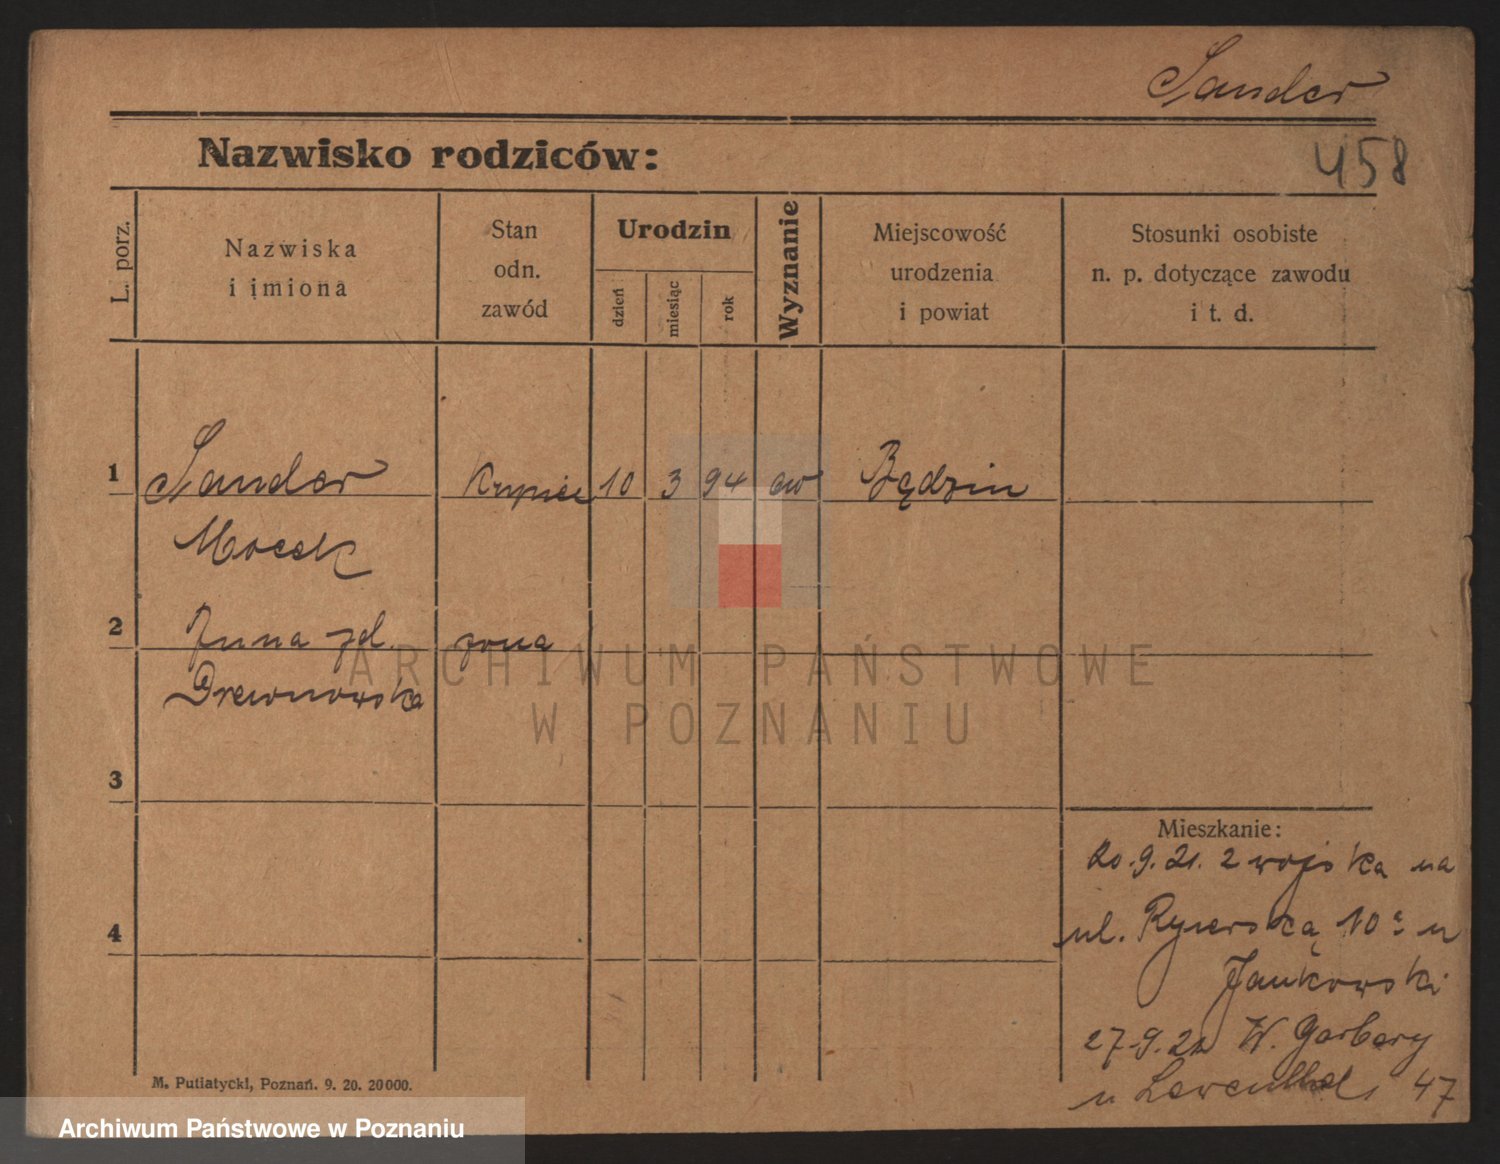 Sander
Nazwisko rodziców:
458
L. porz.
Nazwiska
i imiona
Stan
odn.
zawód
Urodzin
dzień
miesiąc
rok
Wyznanie
Miejscowość
urodzenia
i powiat
Stosunki osobiste
n. p. dotyczące zawodu
i t. d.
1
Sander
Kupiec
10
3
94
ew
Będzin
Mocek
2
Anna zd.
żona
Drewnowska
ARCHIWUM PAŃSTWOWE
W POZNANIU
3
4
Mieszkanie:
20.9.21. z wojska na
ul. 10a u
Jankowski
27.9.21 W. Garbary
u 47
M. Putiatycki, Poznań. 9. 20. 20000.
Archiwum Państwowe w Poznaniu